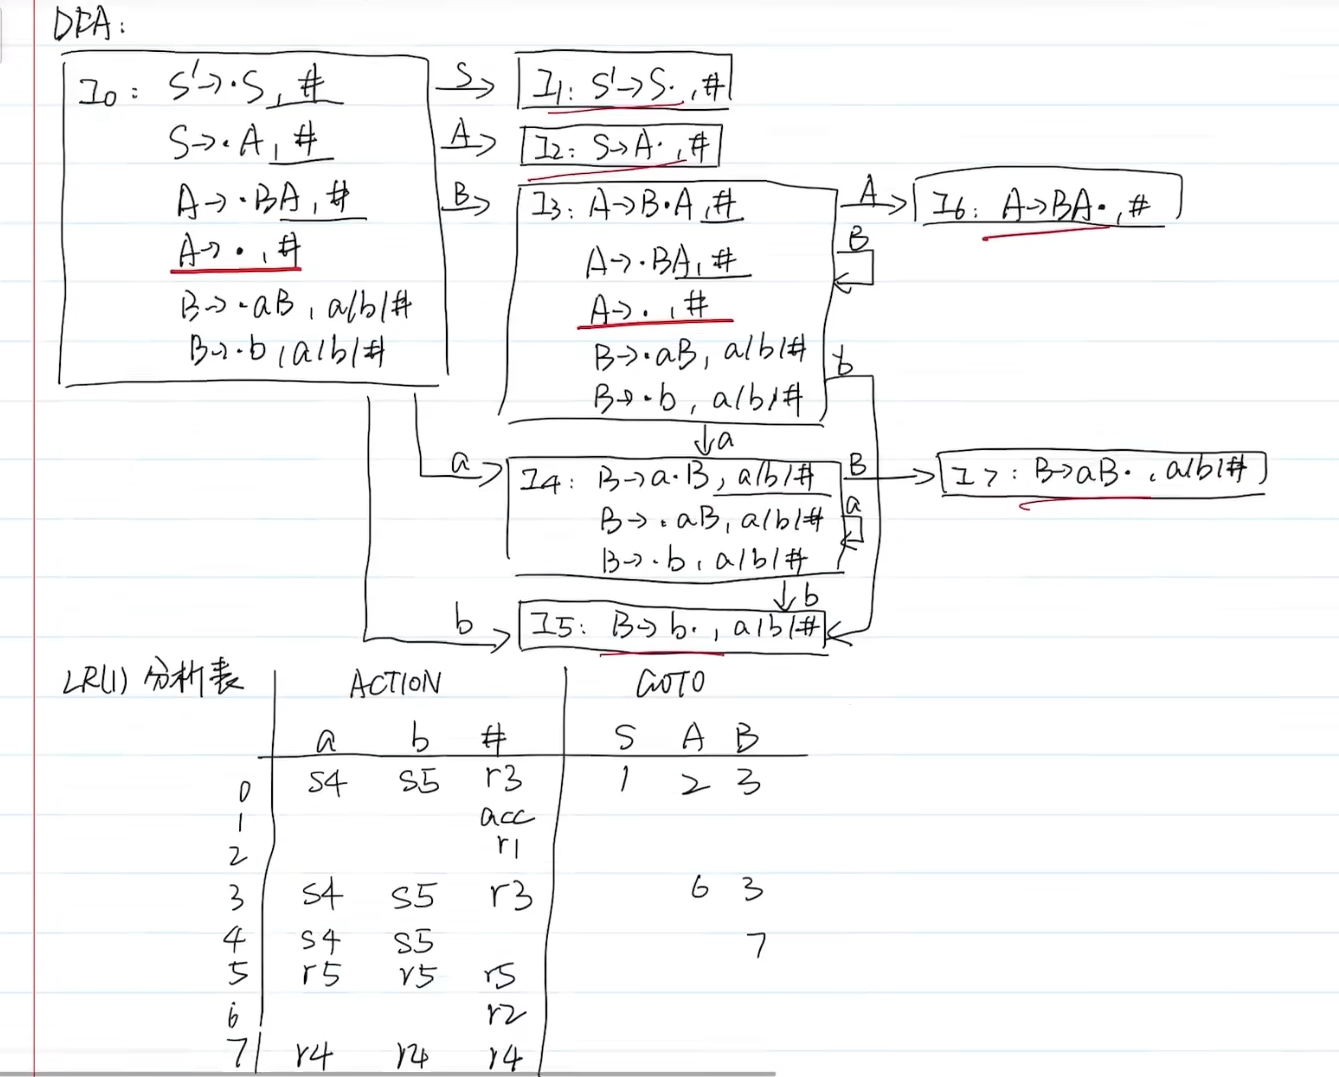 DFA:
I0: S'→·S, #
S→·A, #
A→·BA, #
A→·, #
B→·aB, a/b/#
B→·b, a/b/#
S
I1: S'→S·, #
A
I2: S→A·, #
B
I3: A→B·A, #
A→·BA, #
A→·, #
B→·aB, a/b/#
B→·b, a/b/#
A
I6: A→BA·, #
B
b
a
a
I4: B→a·B, a/b/#
B→·aB, a/b/#
B→·b, a/b/#
B
I7: B→aB·, a/b/#
a
b
b
I5: B→b·, a/b/#
LR(1) 分析表 ACTION GOTO
a b # S A B
0 s4 s5 r3 1 2 3
1 acc
2 r1
3 s4 s5 r3 6 3
4 s4 s5 7
5 r5 r5 r5
6 r2
7 r4 r4 r4